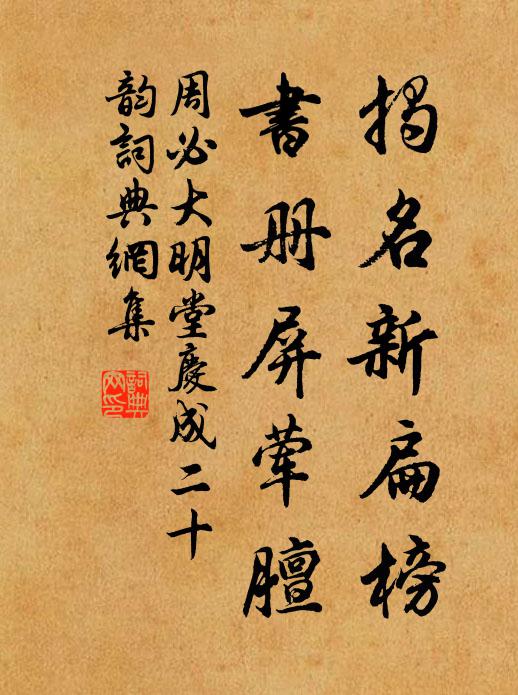 揭名新扁榜
書册屏葷膻
周必大明堂慶成二十
韵詞典網集
詞典網印